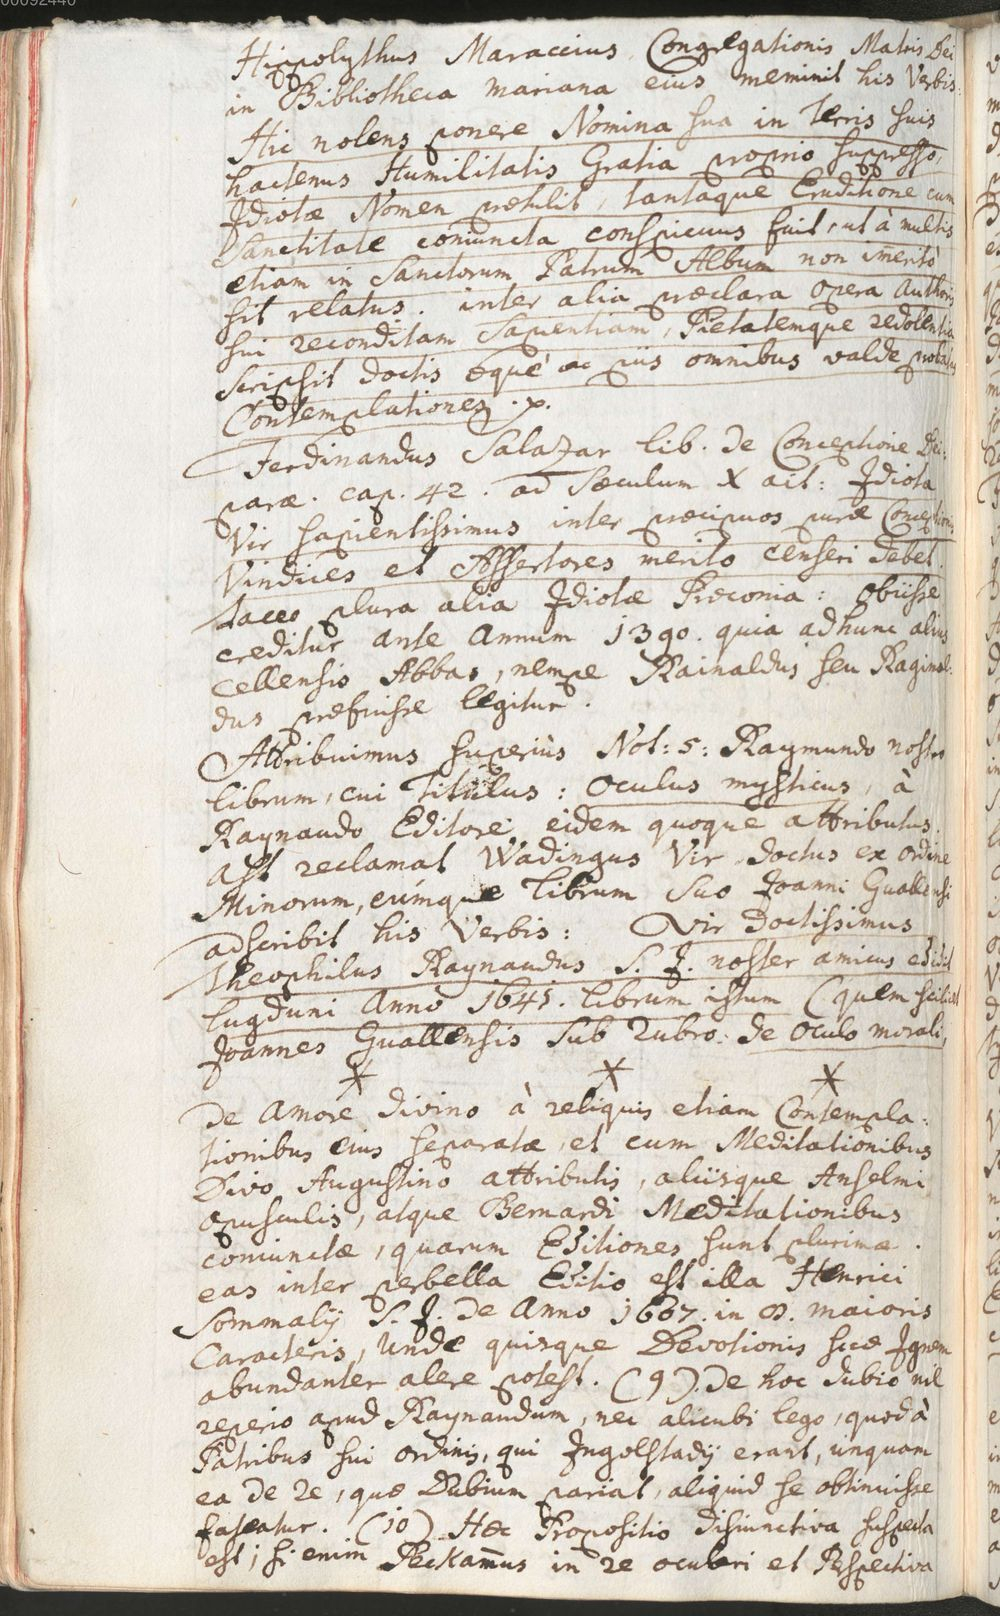 00092440
Hippolythus Maraccius, Congregationis Matris Dei
in Bibliotheca Mariana eius meminit his Verbis:
Hic nolens ponere Nomina sua in Terris suis
hactenus Humilitatis Gratia proprio suppresso,
Idiotæ Nomen prætulit, tantaque Eruditione cum
Sanctitate coniuncta conspicuus fuit, ut à multis
etiam in Sanctorum Patrum Album non im̄eritò
sit relatus. inter alia præclara opera Authoris
sui reconditam Sapientiam, Pietatemque redolentia
scripsit doctis æquè ac piis omnibus valde probatas
Contemplationes .p.
Ferdinandus Salazar lib. de Conceptione Dei:
paræ. cap. 42. ad Sæculum X ait: Idiota
Vir sapientissimus inter præcipuos puræ Conceptionis
Vindices et Assertores merito censeri debet.
taceo plura alia Idiotæ Præconia: obiisse
creditur ante Annum 1390. quia ad hunc alius
cellensis Abbas, nempe Rainaldus seu Raginal:
dus præfuisse legitur.
Attribuimus superiùs Not: 5: Raymundo nostro
librum, cui Titulus: Oculus mysticus, à
Raynaudo Editore eidem quoque attributus.
ast reclamat Wadingus Vir doctus ex ordine
Minorum, eúmque librum suo Joanni Guallensi
adscribit his Verbis: Vir doctissimus
Theophilus Raynaudus S. J. noster amicus edidit
lugduni Annò 1641. librum istum (quem scilicet
Joannes Guallensis sub rubro: de oculo morali,
de Amore divino à reliquis etiam Contempla:
tionibus eius separatæ, et cum Meditationibus
Divo Augustino attributis, aliisque Anselmi
opusculis, atque Bernardi Meditationibus
coniunctæ, quarum Editiones sunt plurimæ.
eas inter perbella Editio est illa Henrici
Sommalij S. J. de Anno 1607. in 8. maioris
Caracteris, Unde quisque Devotionis suæ Ignem
abundanter alere potest. (9). De hoc dubio nil
reperio apud Raynaudum, nec alicubi lego, quod à
Patribus sui ordinis, qui Ingolstadij erant, unquam
ea de re, quæ Dubium pariat, aliquid se obtinuisse
fateatur. (10) Hæc Propositio disiunctiva suspecta
est; si enim Peckam̄us in re oculari et Perspectiva